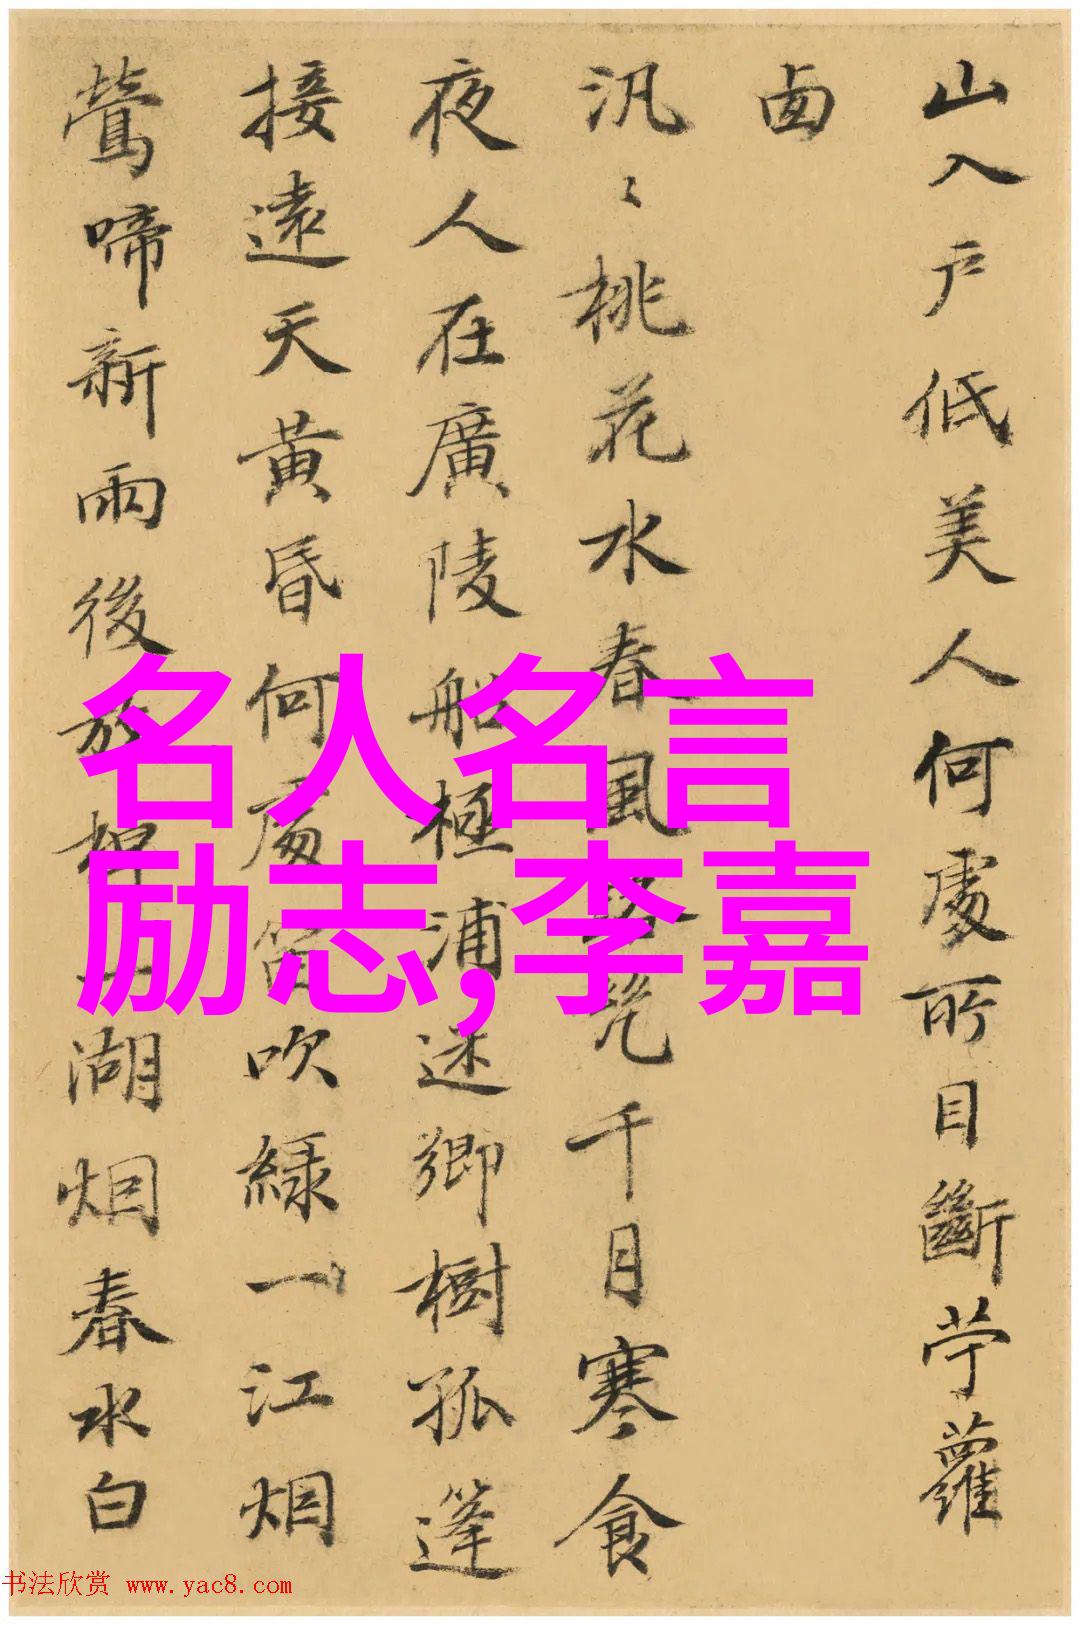 山入户低美人何處所目斷苧蘿
卥
汎〻桃花水春風千月寒食
夜人在廣陵船極浦迷鄉樹孤篷
接遠天黄昏何處笛吹緑一江烟
鶯啼新雨後放棹一湖烟春水白
名人名言
励志,李嘉
书法欣赏 www.yac8.com